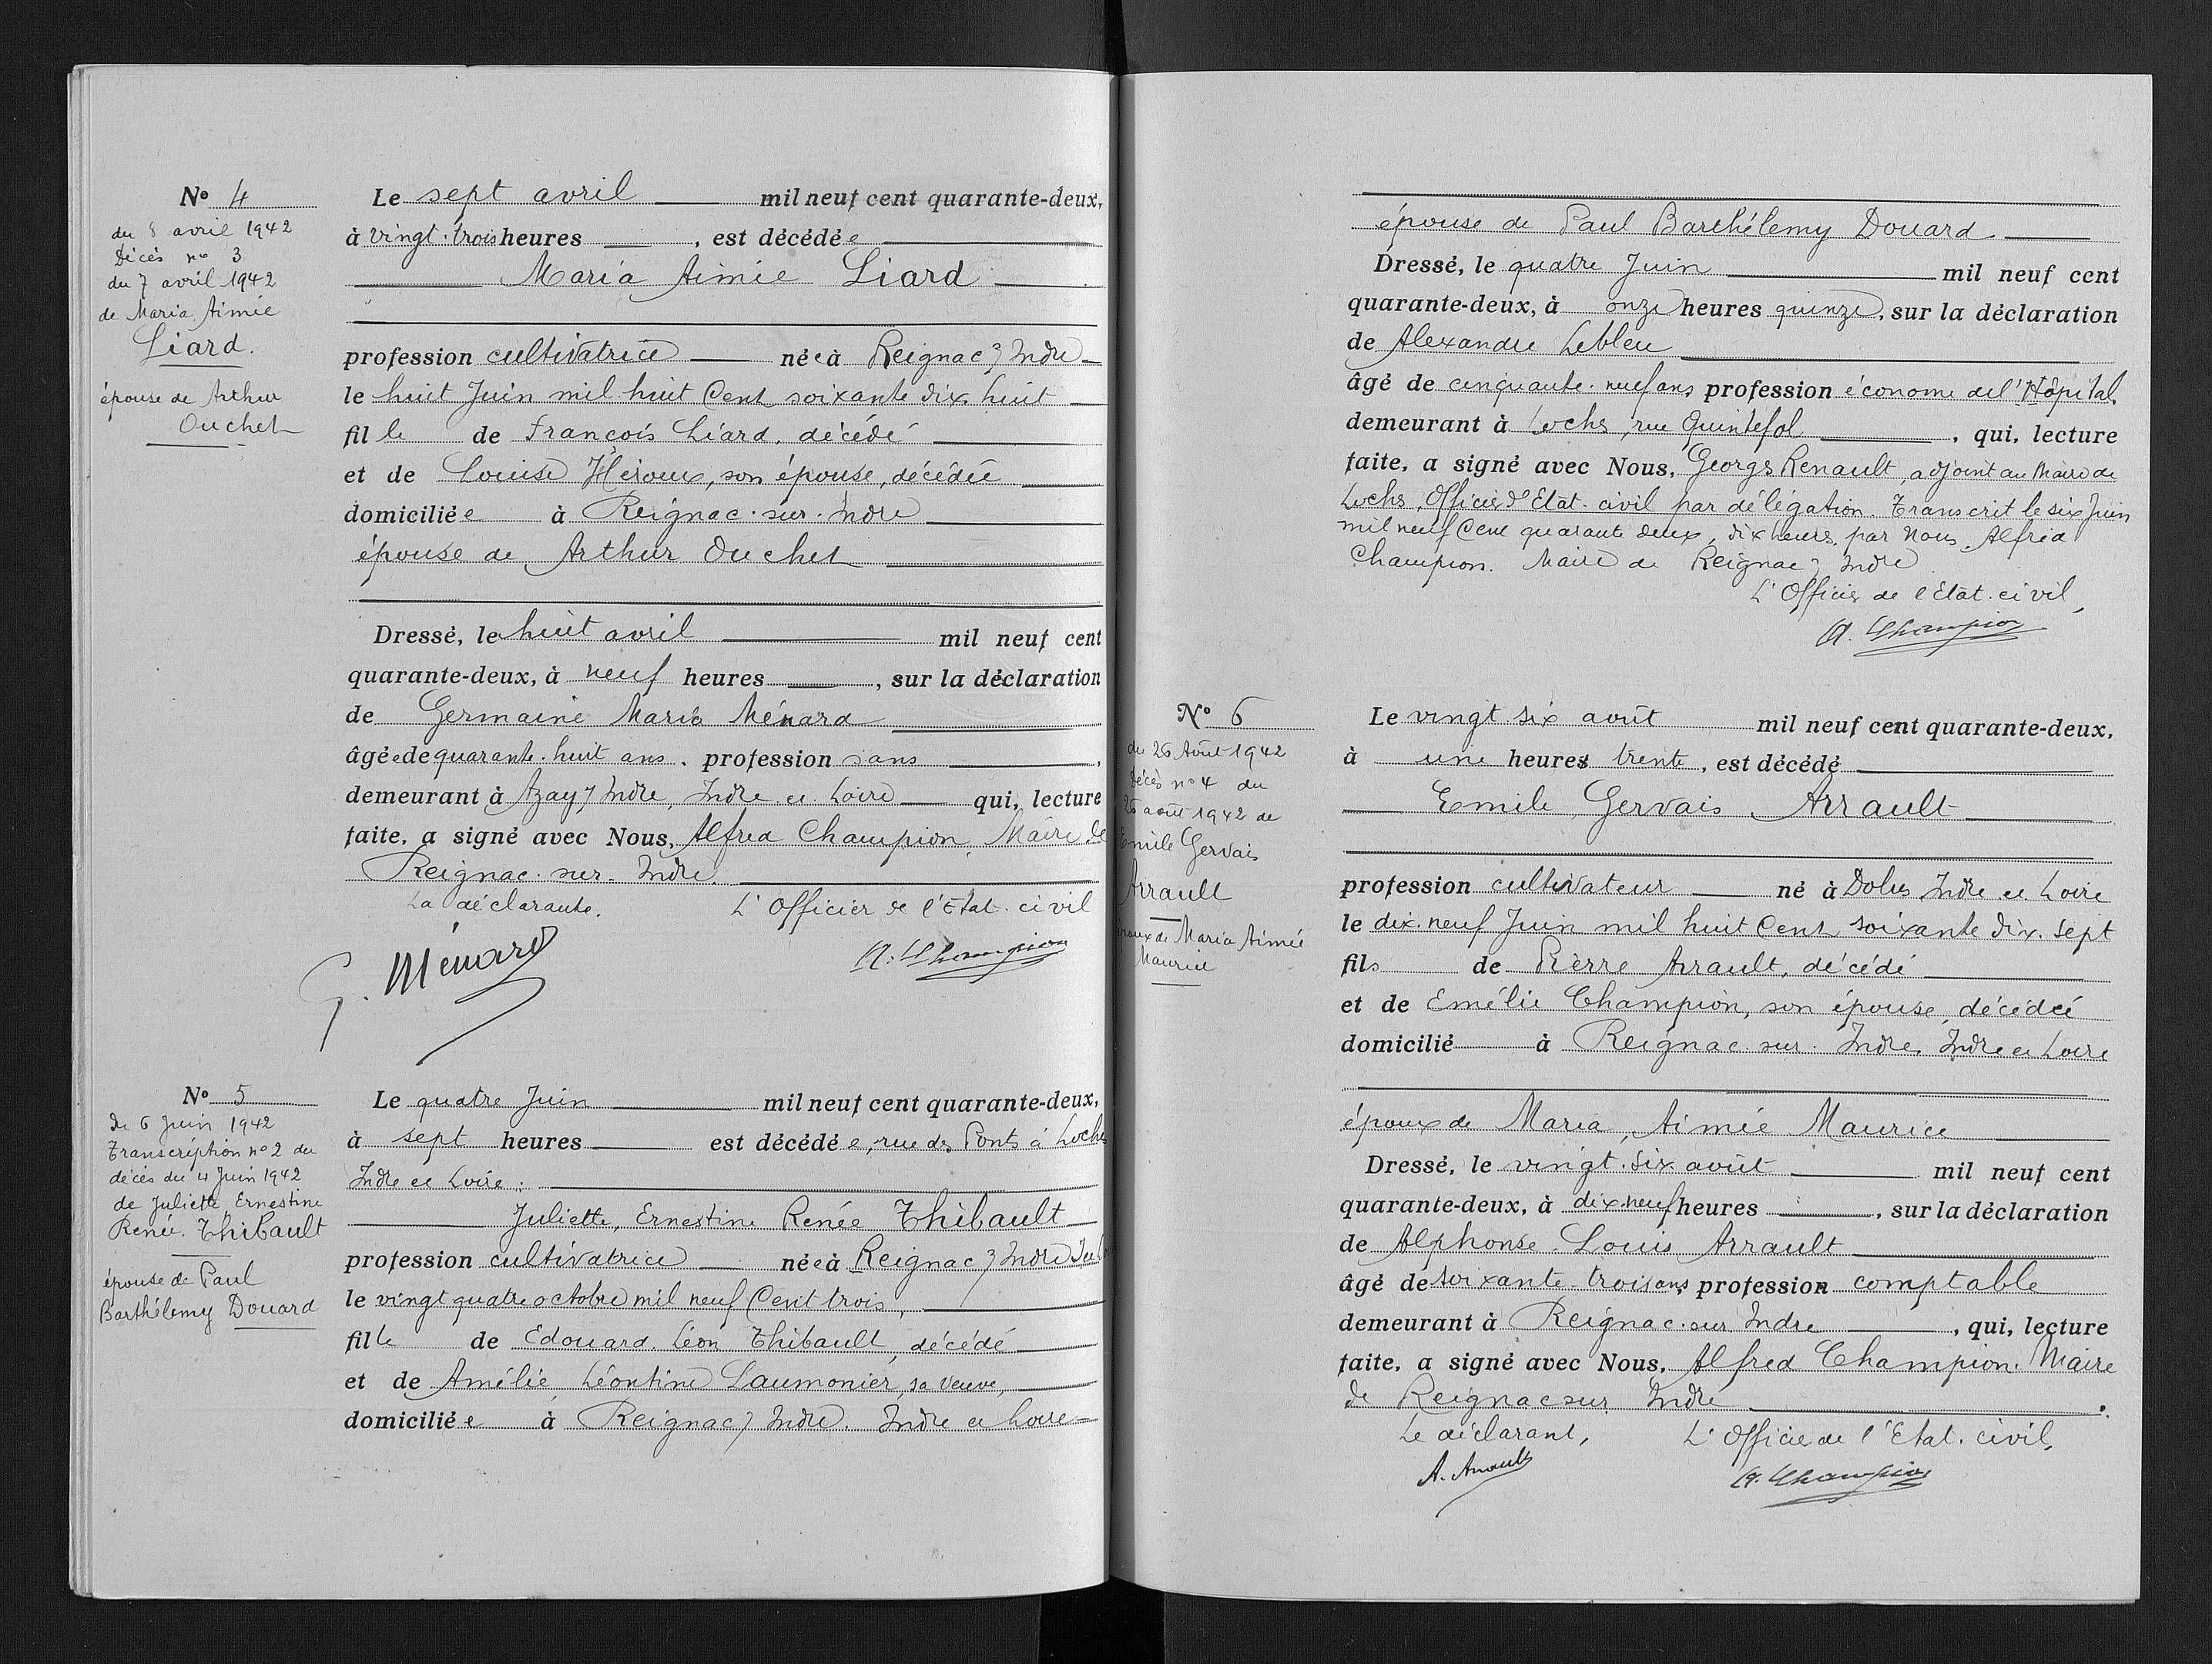 Nº 4
du 8 avril 1942
Décès nº 3
du 7 avril 1942
de Maria Aimée
Liard.
épouse de Arthur
Ouchet
Le sept avril mil neuf cent quarante-deux,
à vingt-trois heures , est décédée
Maria Aimée Liard
profession cultivatrice née à Reignac s/ Indre
le huit Juin mil huit Cent soixante dix huit
fille de François Liard, décédé
et de Louise Héroux, son épouse, décédée
domiciliée à Reignac-sur-Indre
épouse de Arthur Ouchet
Dressé, le huit avril mil neuf cent
quarante-deux, à neuf heures , sur la déclaration
de Germaine Maria Ménard
âgée de quarante-huit ans, profession sans
demeurant à Azay s/ Indre, Indre et Loire qui, lecture
faite, a signé avec Nous, Alfred Champion, Maire de
Reignac-sur-Indre.
La déclarante. L'Officier de l'Etat-civil
G. Ménard A. Champion
Nº 5
du 6 Juin 1942
Transcription nº 2 du
décès du 4 Juin 1942
de Juliette, Ernestine
Renée. Thibault
épouse de Paul
Barthélemy Douard
Le quatre Juin mil neuf cent quarante-deux,
à sept heures est décédée, rue des Ponts à Loches
Indre et Loire:
Juliette, Ernestine Renée Thibault
profession cultivatrice née à Reignac s/ Indre
le vingt quatre octobre mil neuf Cent trois,
fille de Edouard Léon Thibault, décédé
et de Amélie Léontine Laumonier, sa veuve,
domiciliée à Reignac s/ Indre. Indre et Loire
épouse de Paul Barthélemy Douard
Dressé, le quatre Juin mil neuf cent
quarante-deux, à onze heures quinze, sur la déclaration
de Alexandre Lebleu
âgé de cinquante-neuf ans profession économe de l'Hôpital
demeurant à Loches, rue Quintefol , qui, lecture
faite, a signé avec Nous, Georges Renault, adjoint au Maire de
Loches, Officier d'Etat-civil par délégation. Transcrit le six Juin
mil neuf Cent quarante deux, dix heures, par Nous, Alfred
Champion. Maire de Reignac s/ Indre
L'Officier de l'Etat-civil,
A. Champion
Nº 6
du 26 Août 1942
Décès nº 4 du
26 août 1942 de
Emile Gervais
Arrault
époux de Maria Aimée
Maurice
Le vingt six août mil neuf cent quarante-deux,
à une heures trente, est décédé
Emile, Gervais Arrault
profession cultivateur né à Dolus Indre et Loire
le dix-neuf Juin mil huit Cent soixante dix-sept
fils de Pierre Arrault, décédé
et de Emélie Champion, son épouse, décédée
domicilié à Reignac-sur-Indre, Indre et Loire
époux de Maria, Aimée Maurice
Dressé, le vingt-six août mil neuf cent
quarante-deux, à dix neuf heures , sur la déclaration
de Alphonse Louis Arrault
âgé de soixante-trois ans, profession comptable
demeurant à Reignac-sur Indre , qui, lecture
faite, a signé avec Nous, Alfred Champion, Maire
de Reignac sur Indre
Le déclarant, L'Officier de l'Etat-civil,
A. Arrault A. Champion